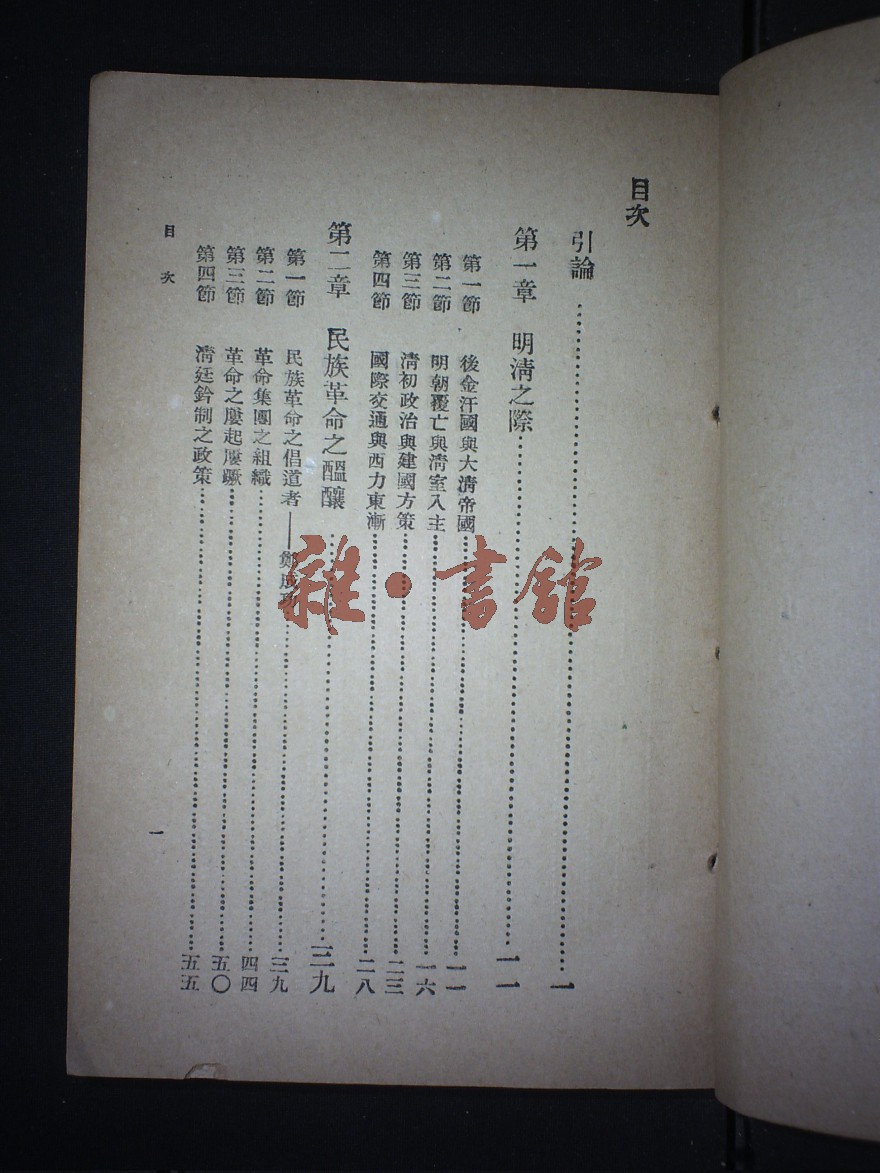 目次
引論⋯⋯⋯⋯⋯⋯一
第一章 明淸之際⋯⋯⋯⋯⋯⋯一一
第一節 後金汗國與大淸帝國⋯⋯⋯⋯⋯⋯一一
第二節 明朝覆亡與淸室入主⋯⋯⋯⋯⋯⋯一六
第三節 淸初政治與建國方策⋯⋯⋯⋯⋯⋯二三
第四節 國際交通與西力東漸⋯⋯⋯⋯⋯⋯二八
第二章 民族革命之醞釀⋯⋯⋯⋯⋯⋯三九
第一節 民族革命之倡道者——鄭成功⋯⋯⋯⋯⋯⋯三九
第二節 革命集團之組織⋯⋯⋯⋯⋯⋯四四
第三節 革命之屢起屢蹶⋯⋯⋯⋯⋯⋯五〇
第四節 淸廷鈐制之政策⋯⋯⋯⋯⋯⋯五五
目次
一
雜·書館